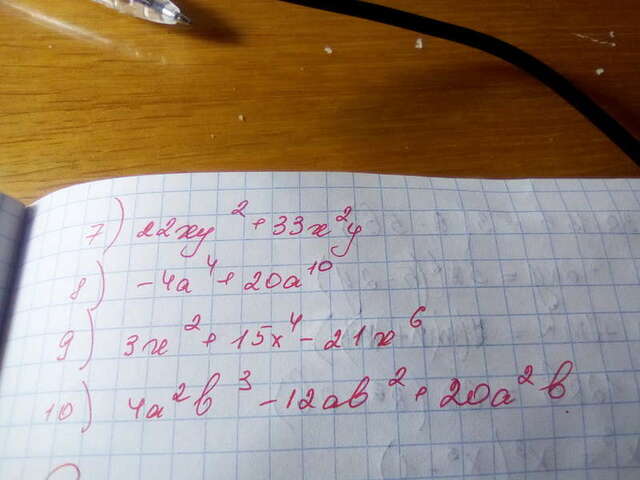 7) 22xy² + 33x²y
8) -4a⁴ + 20a¹⁰
9) 3x² + 15x⁴ - 21x⁶
10) 4a²b³ - 12ab² + 20a²b